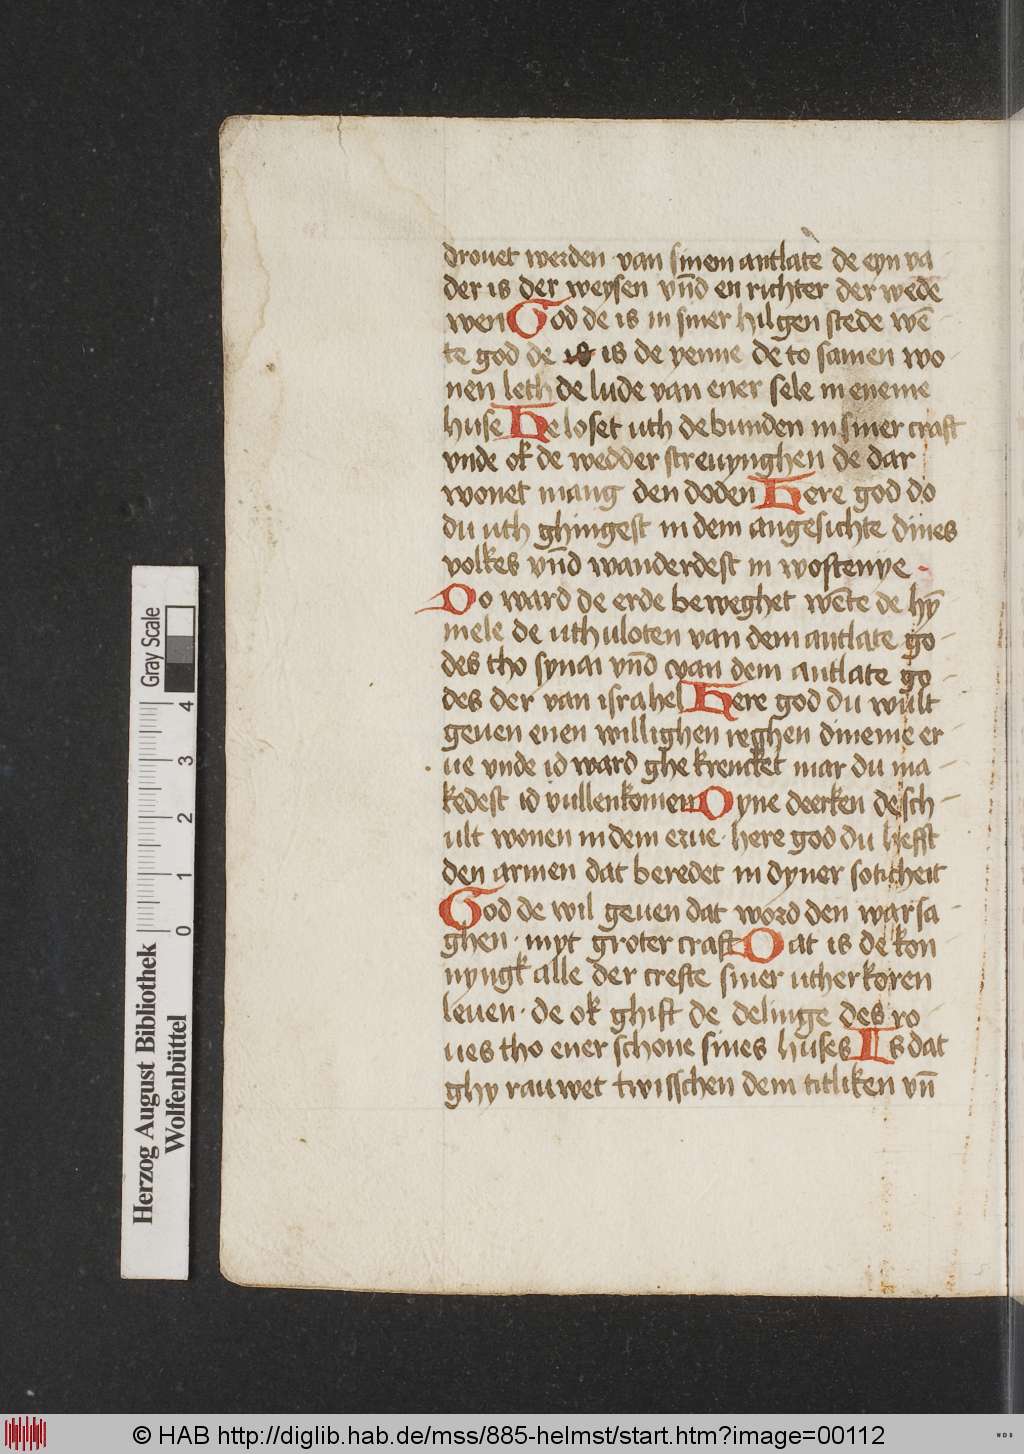 drouet werden van sinem antlate de eyn va
der is der weysen vn̄d en richter der wedē
wen God de is in siner hilgen stede wē
te god de is de yenne de to samen wo
nen leth de lude van ener sele in eneme
huse He loset uth de bunden in siner craft
vnde ok de wedder streuynghen de dar
wonet mang den doden Here god do
du uth ghingest in dem angesichte dines
volkes vn̄d wanderdest in wostenye
Do ward de erde beweghet wēte de hȳ
mele de uthuloten van dem antlate go
des tho synai vn̄d van dem antlate go
des der van israhel Here god du wult
geuen enen willighen reghen dineme er
ue vnde id ward ghekrencket mar du ma
kedest id vullenkomen Dyne deerken de sch
ult wonen in dem erue here god du hefft
den armen dat beredet in dyner soticheit
God de wil geuen dat word den warsa
ghen myt groter craft Dat is de kon
nyngk alle der crefte siner utherkoren
leuen de ok ghift de delinge des ro
ues tho ener schone sines huses Is dat
ghy rauwet twisschen dem titliken vn̄
Gray Scale
0 1 2 3 4
Herzog August Bibliothek
Wolfenbüttel
© HAB http://diglib.hab.de/mss/885-helmst/start.htm?image=00112
WDB